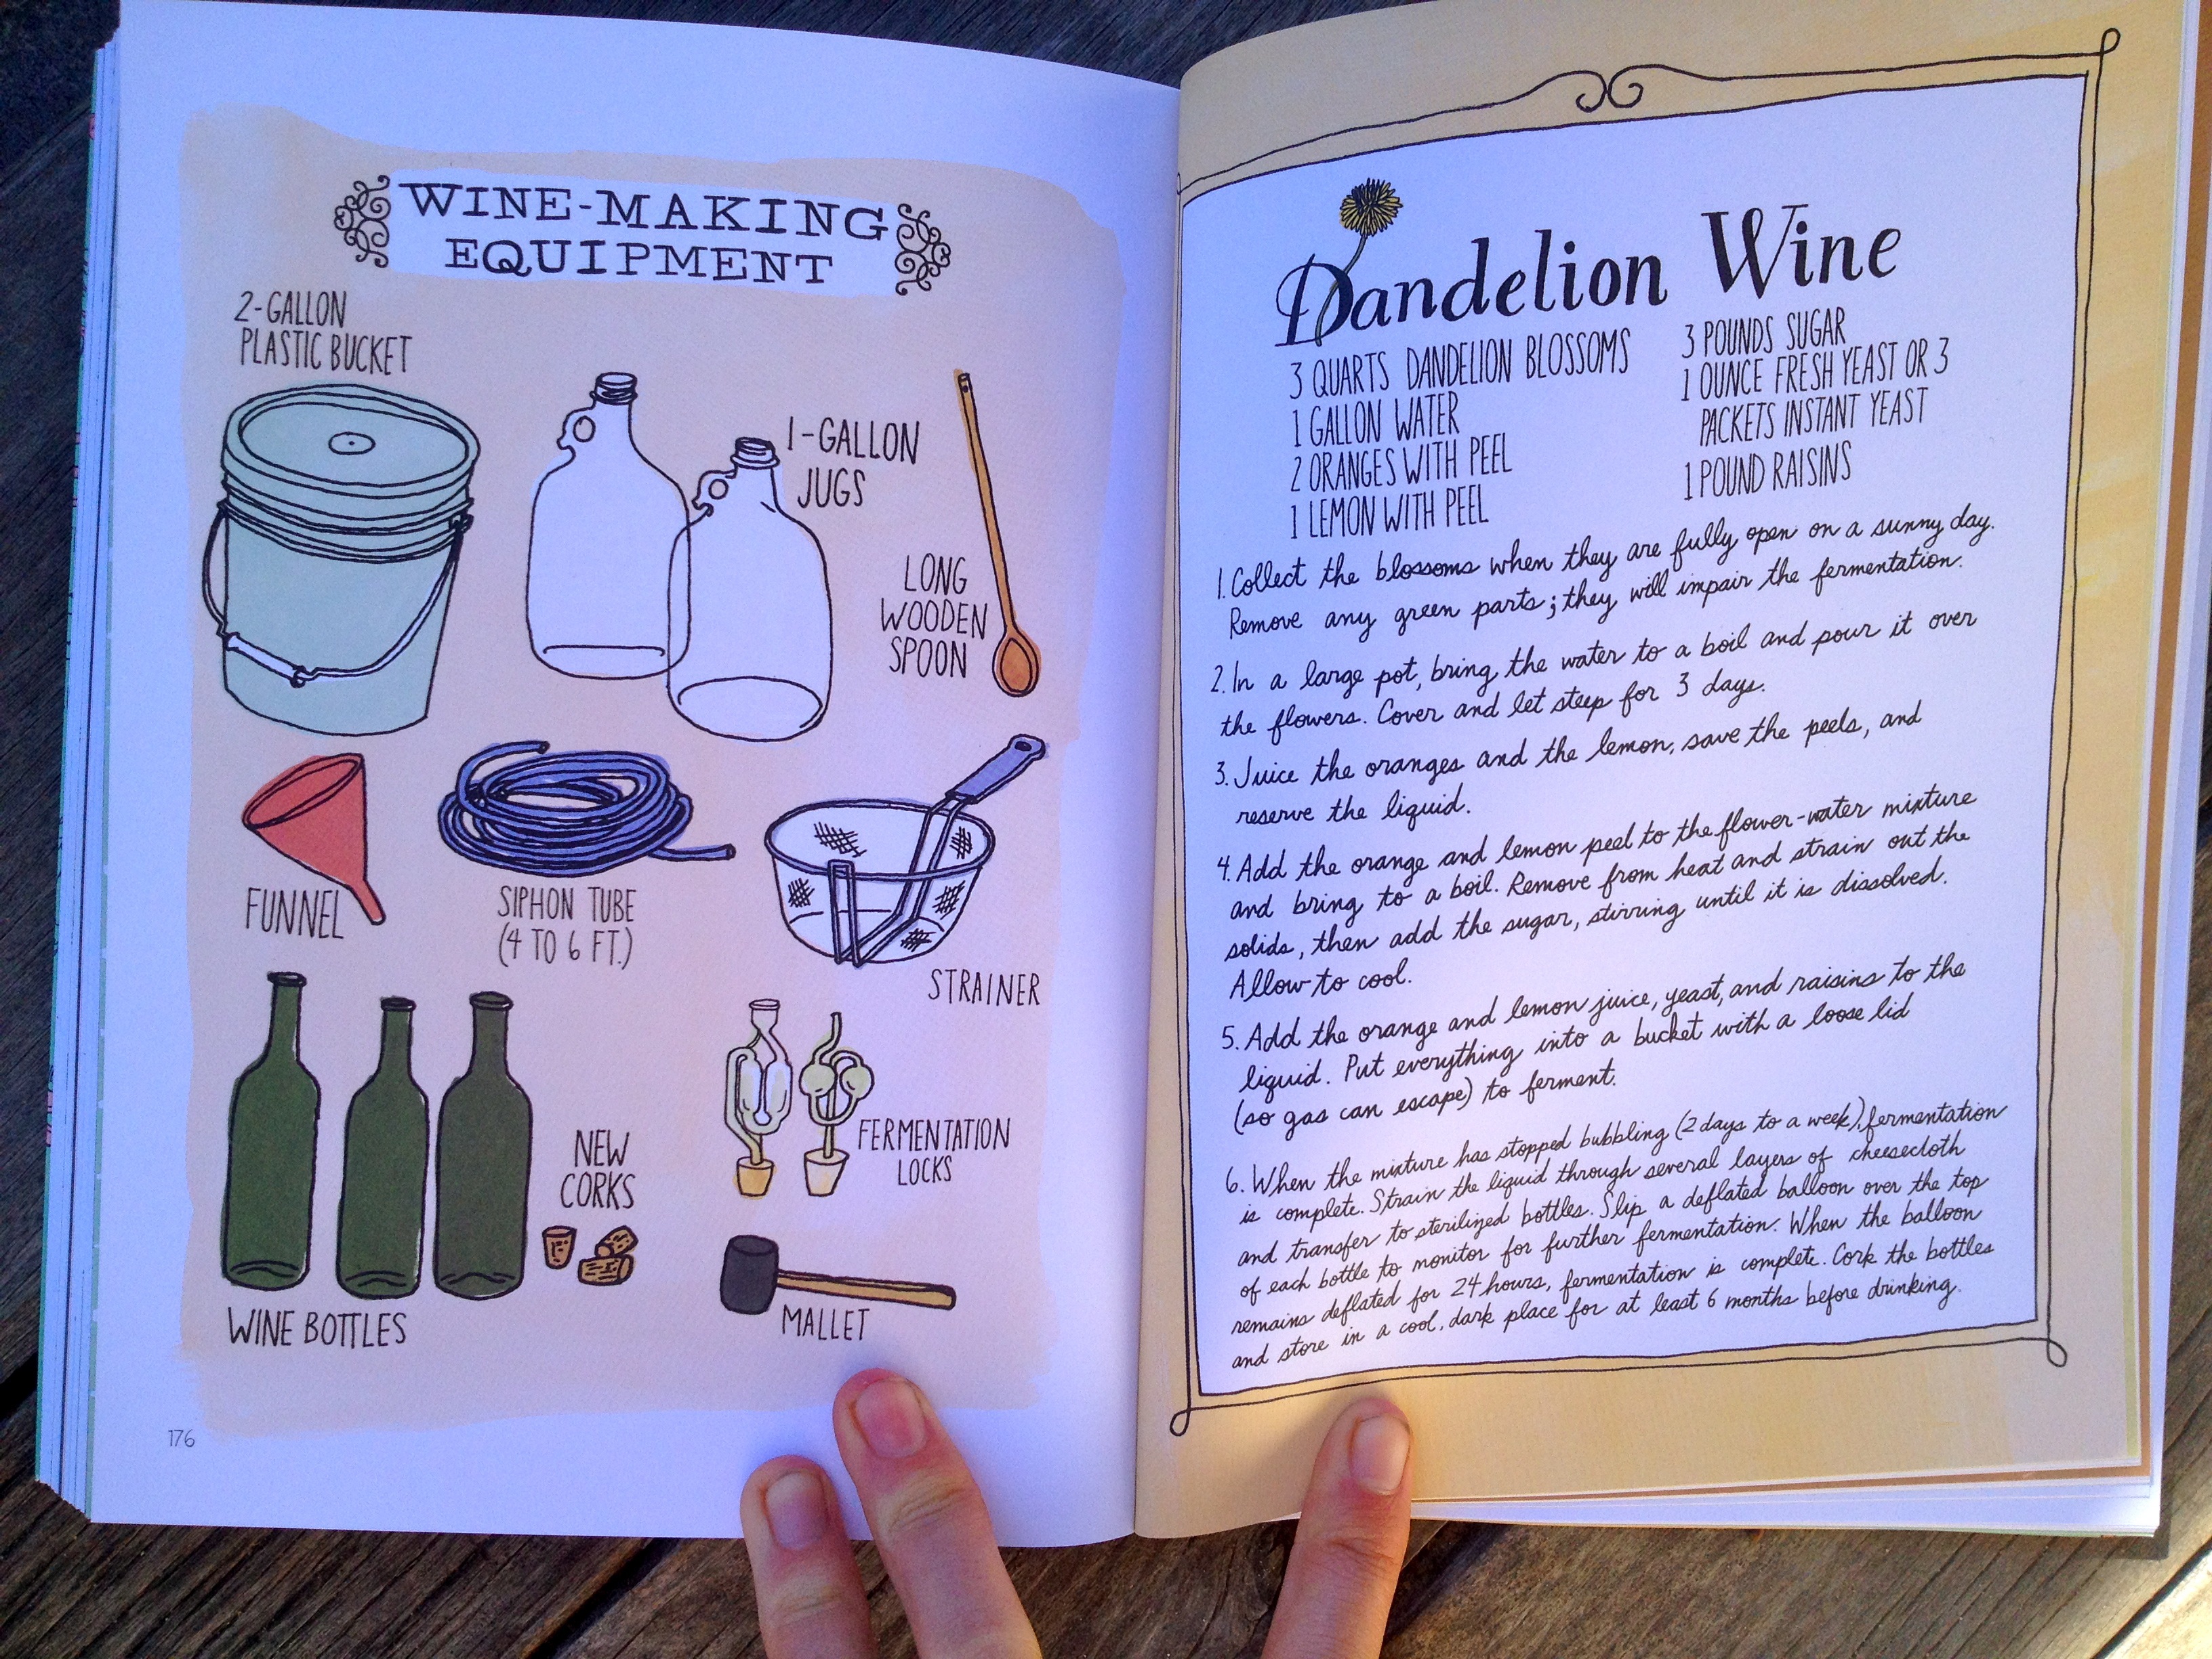 WINE-MAKING
EQUIPMENT
2-GALLON
PLASTIC BUCKET
1-GALLON
JUGS
LONG
WOODEN
SPOON
FUNNEL
SIPHON TUBE
(4 TO 6 FT.)
STRAINER
WINE BOTTLES
NEW
CORKS
FERMENTATION
LOCKS
MALLET
176
Dandelion Wine
3 QUARTS DANDELION BLOSSOMS
1 GALLON WATER
2 ORANGES WITH PEEL
1 LEMON WITH PEEL
3 POUNDS SUGAR
1 OUNCE FRESH YEAST OR 3
PACKETS INSTANT YEAST
1 POUND RAISINS
1. Collect the blossoms when they are fully open on a sunny day.
Remove any green parts; they will impair the fermentation.
2. In a large pot, bring the water to a boil and pour it over
the flowers. Cover and let steep for 3 days.
3. Juice the oranges and the lemon, save the peels, and
reserve the liquid.
4. Add the orange and lemon peel to the flower-water mixture
and bring to a boil. Remove from heat and strain out the
solids, then add the sugar, stirring until it is dissolved.
Allow to cool.
5. Add the orange and lemon juice, yeast, and raisins to the
liquid. Put everything into a bucket with a loose lid
(so gas can escape) to ferment.
6. When the mixture has stopped bubbling (2 days to a week), fermentation
is complete. Strain the liquid through several layers of cheesecloth
and transfer to sterilized bottles. Slip a deflated balloon over the top
of each bottle to monitor for further fermentation. When the balloon
remains deflated for 24 hours, fermentation is complete. Cork the bottles
and store in a cool, dark place for at least 6 months before drinking.